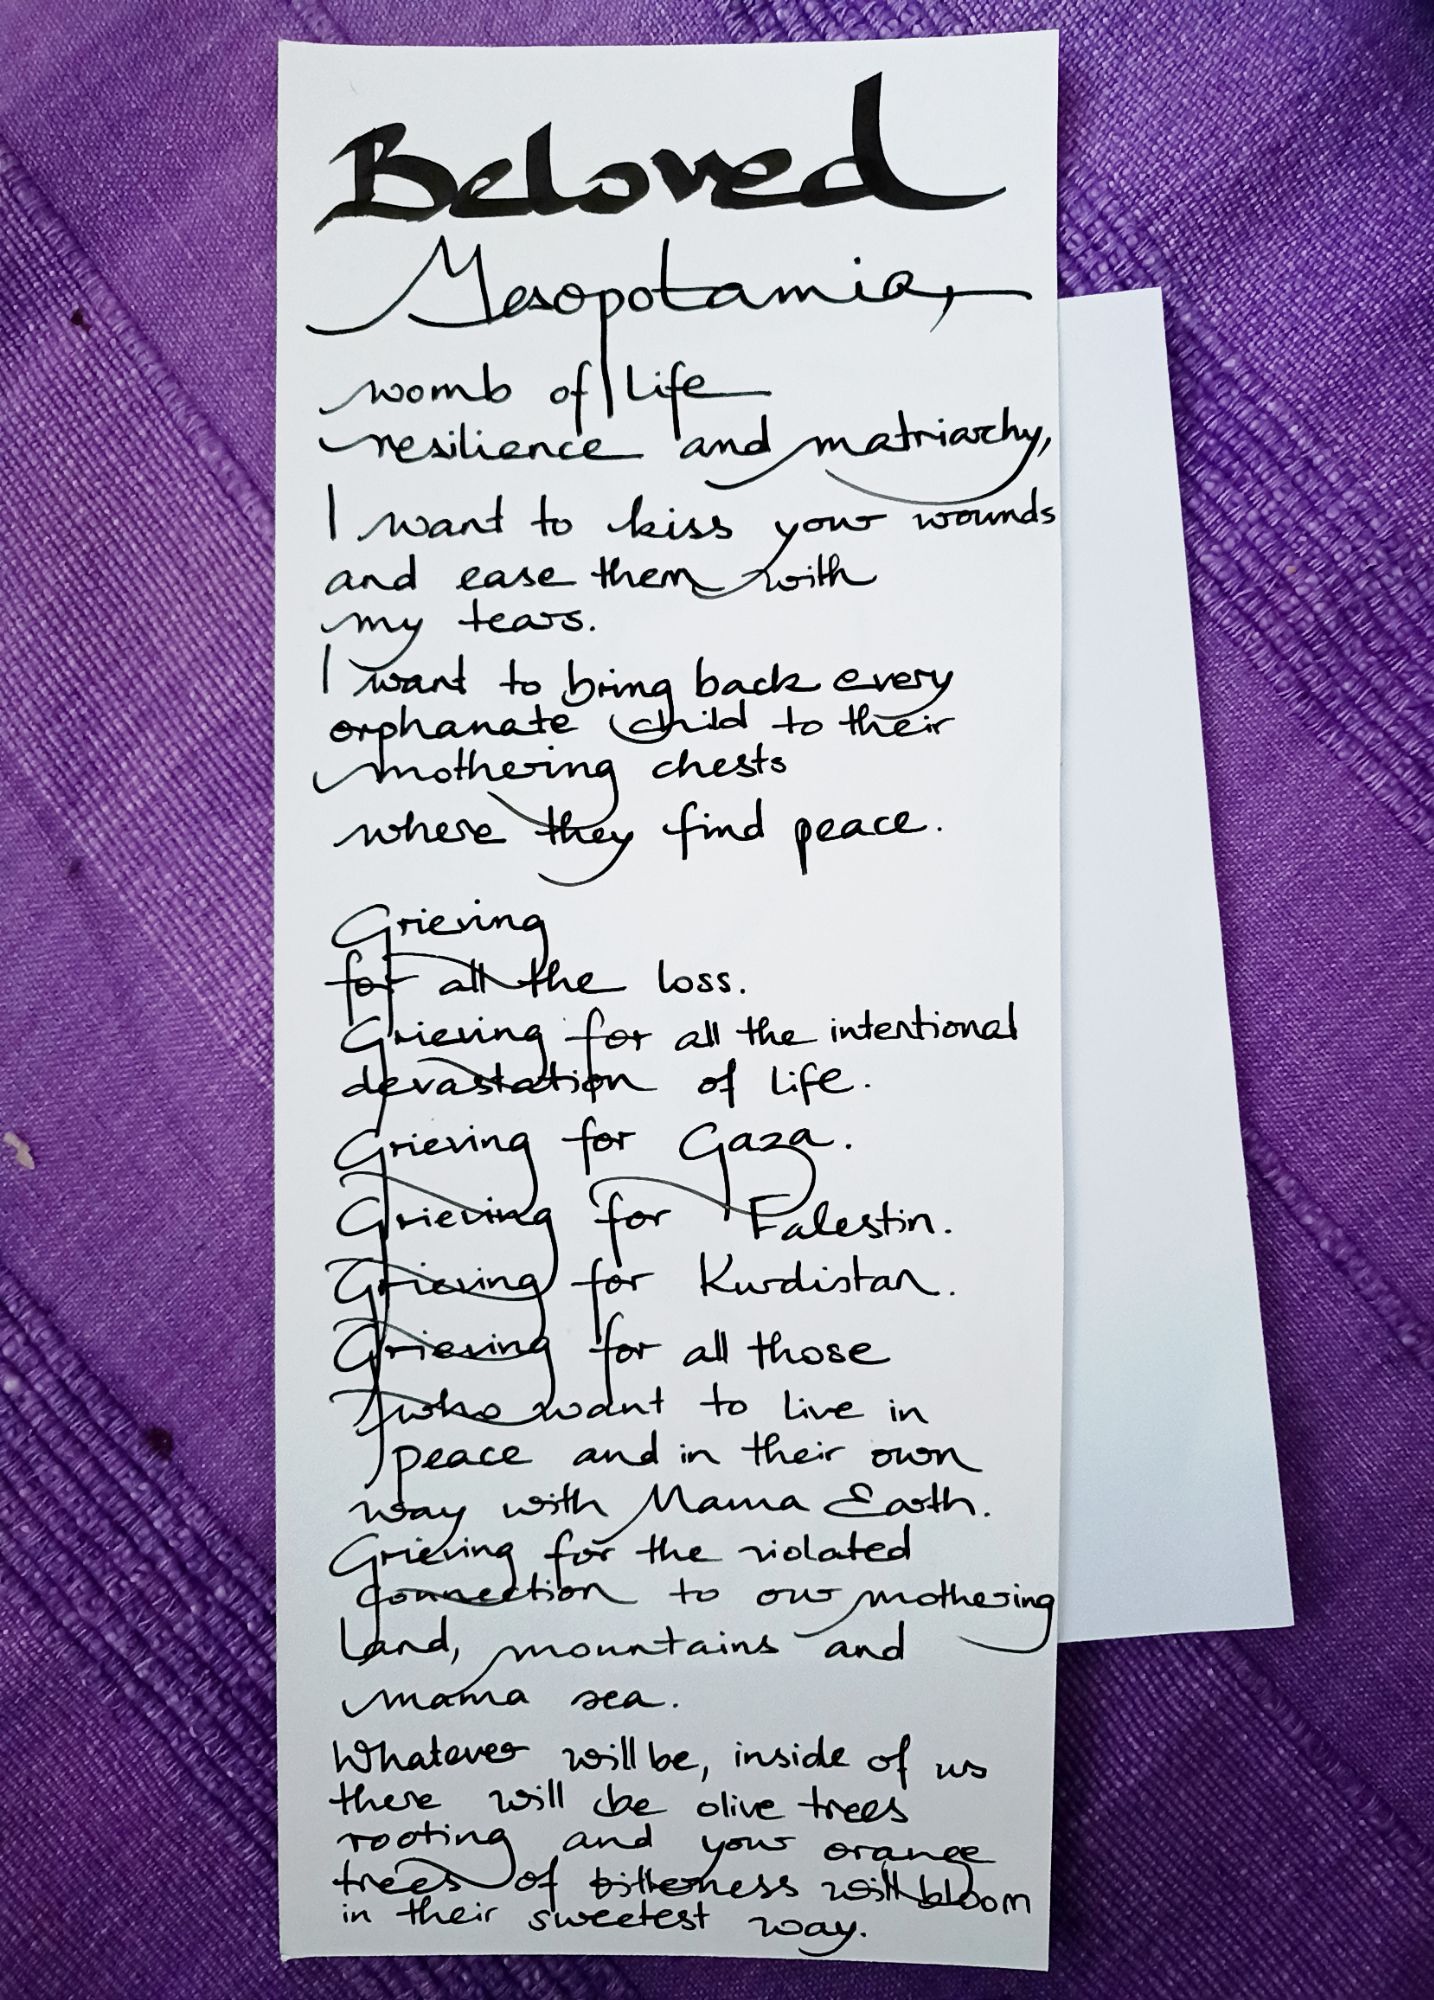 Beloved
Mesopotamia,
womb of life
resilience and matriarchy,
I want to kiss your wounds
and ease them with
my tears.
I want to bring back every
orphanate child to their
mothering chests
where they find peace.
Grieving
for all the loss.
Grieving for all the intentional
devastation of life.
Grieving for Gaza.
Grieving for Falestin.
Grieving for Kurdistan.
Grieving for all those
who want to live in
peace and in their own
way with Mama Earth.
Grieving for the violated
connection to our mothering
land, mountains and
mama sea.
Whatever will be, inside of us
there will be olive trees
rooting and your orange
trees of bitterness will bloom
in their sweetest way.